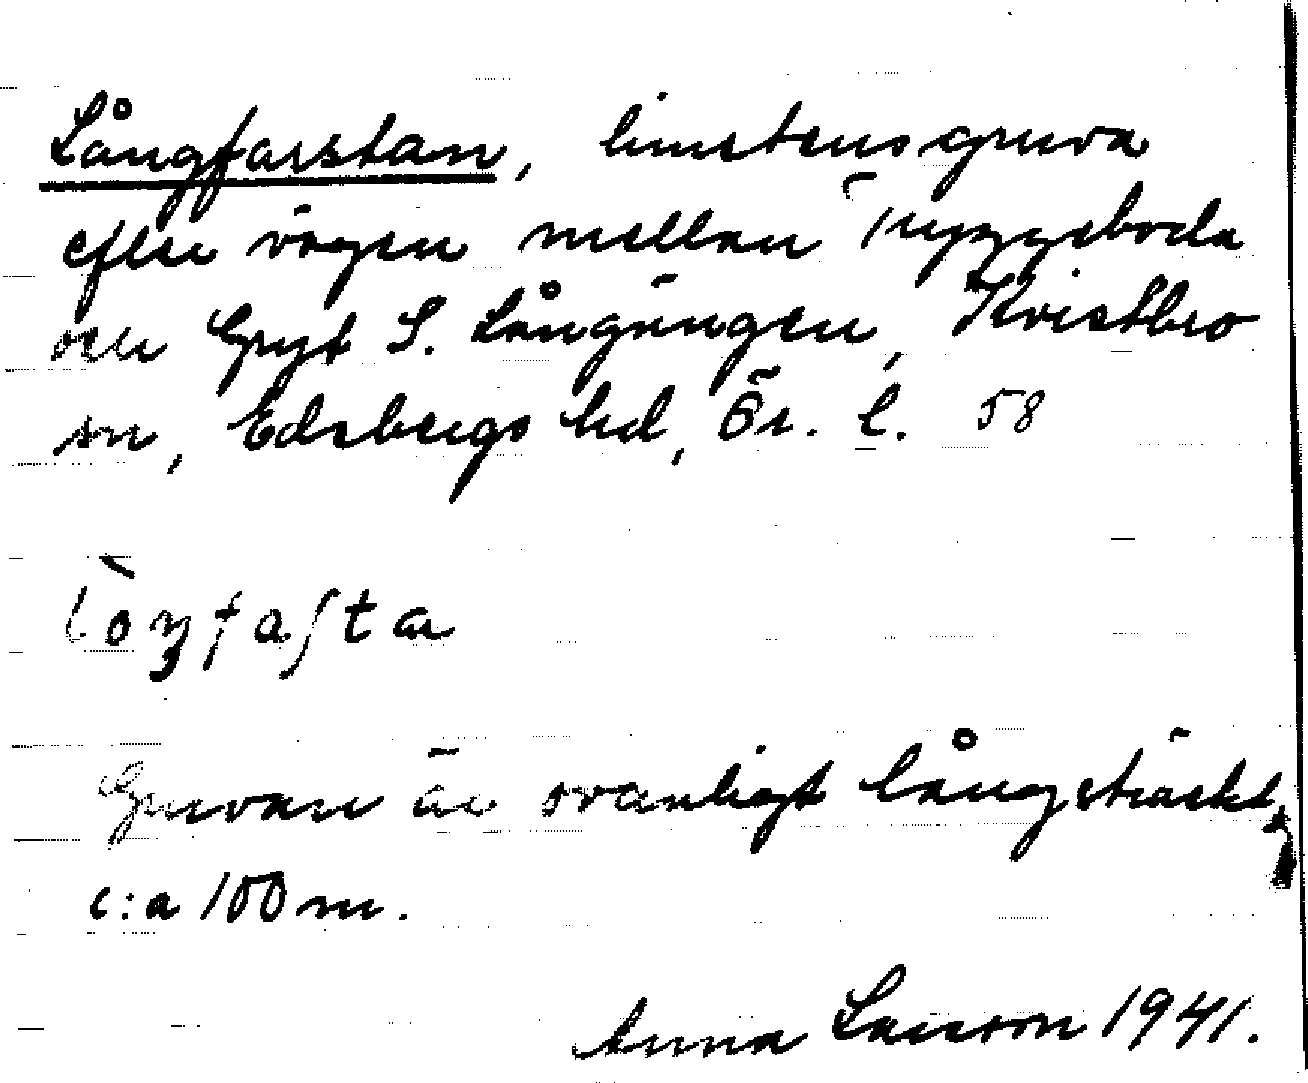 Långfarstan, limstensgruva
efter vägen mellan
och Gryt S. Långängen, Kvistbro
sn, Edsbergs hd, Ör. l. 58
Gruvan är ovanligt långsträckt,
c:a 100 m.
Anna Larsson 1941.